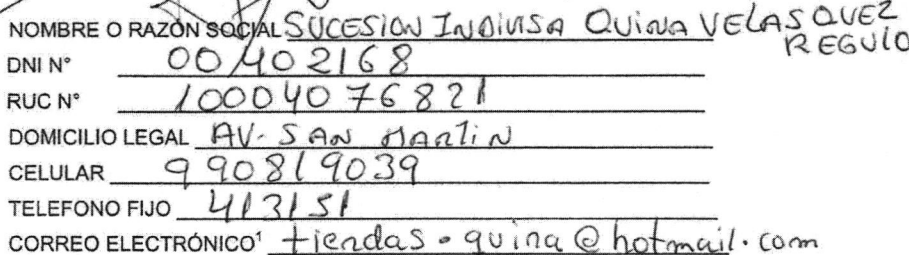 NOMBRE O RAZÓN SOCIAL SUCESION INDIVISA QUINA VELASQUEZ REGULO
DNI N° 00402168
RUC N° 10004076821
DOMICILIO LEGAL AV. SAN MARTIN
CELULAR 990819039
TELEFONO FIJO 413151
CORREO ELECTRÓNICO¹ tiendas.quina@hotmail.com